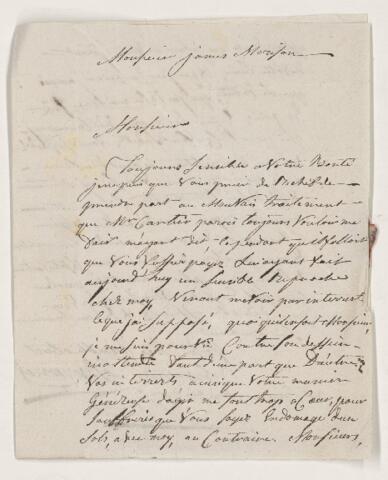 Monsieur james Morison
Monsieur
Toujours Sensible a Votre Bonté
je ne puis que Vous prier de
prendre part au Mauvais traitement
que Mr Cartier paroit toujours Vouloir me
faire m'ayant dit, Cependant qu'il falloit
que Vous fussiez payé, Lui ayant fait
aujourd huy un Sensible Reproche
chez moy, Venant me voir par interest
a ce que j'ai Supposé, quoi qu'il en soit Monsieur,
je me suis pourvû Contre
tant d'une part que
Vos interrets, ainsi que Votre maniere
Généreuse d'agir me sont trop a Cœur, pour
que Vous Soyez Endomagé d'un
Sols, avec moy, au Contraire. Monsieur,